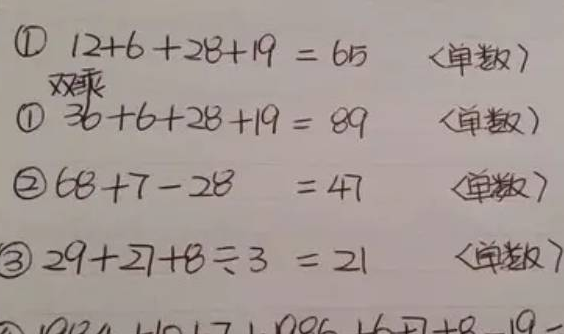 ① 12+6+28+19 = 65 (单数)
双乘
① 36+6+28+19 = 89 (单数)
② 68+7-28 = 47 (单数)
③ 29+27+8÷3 = 21 (单数)